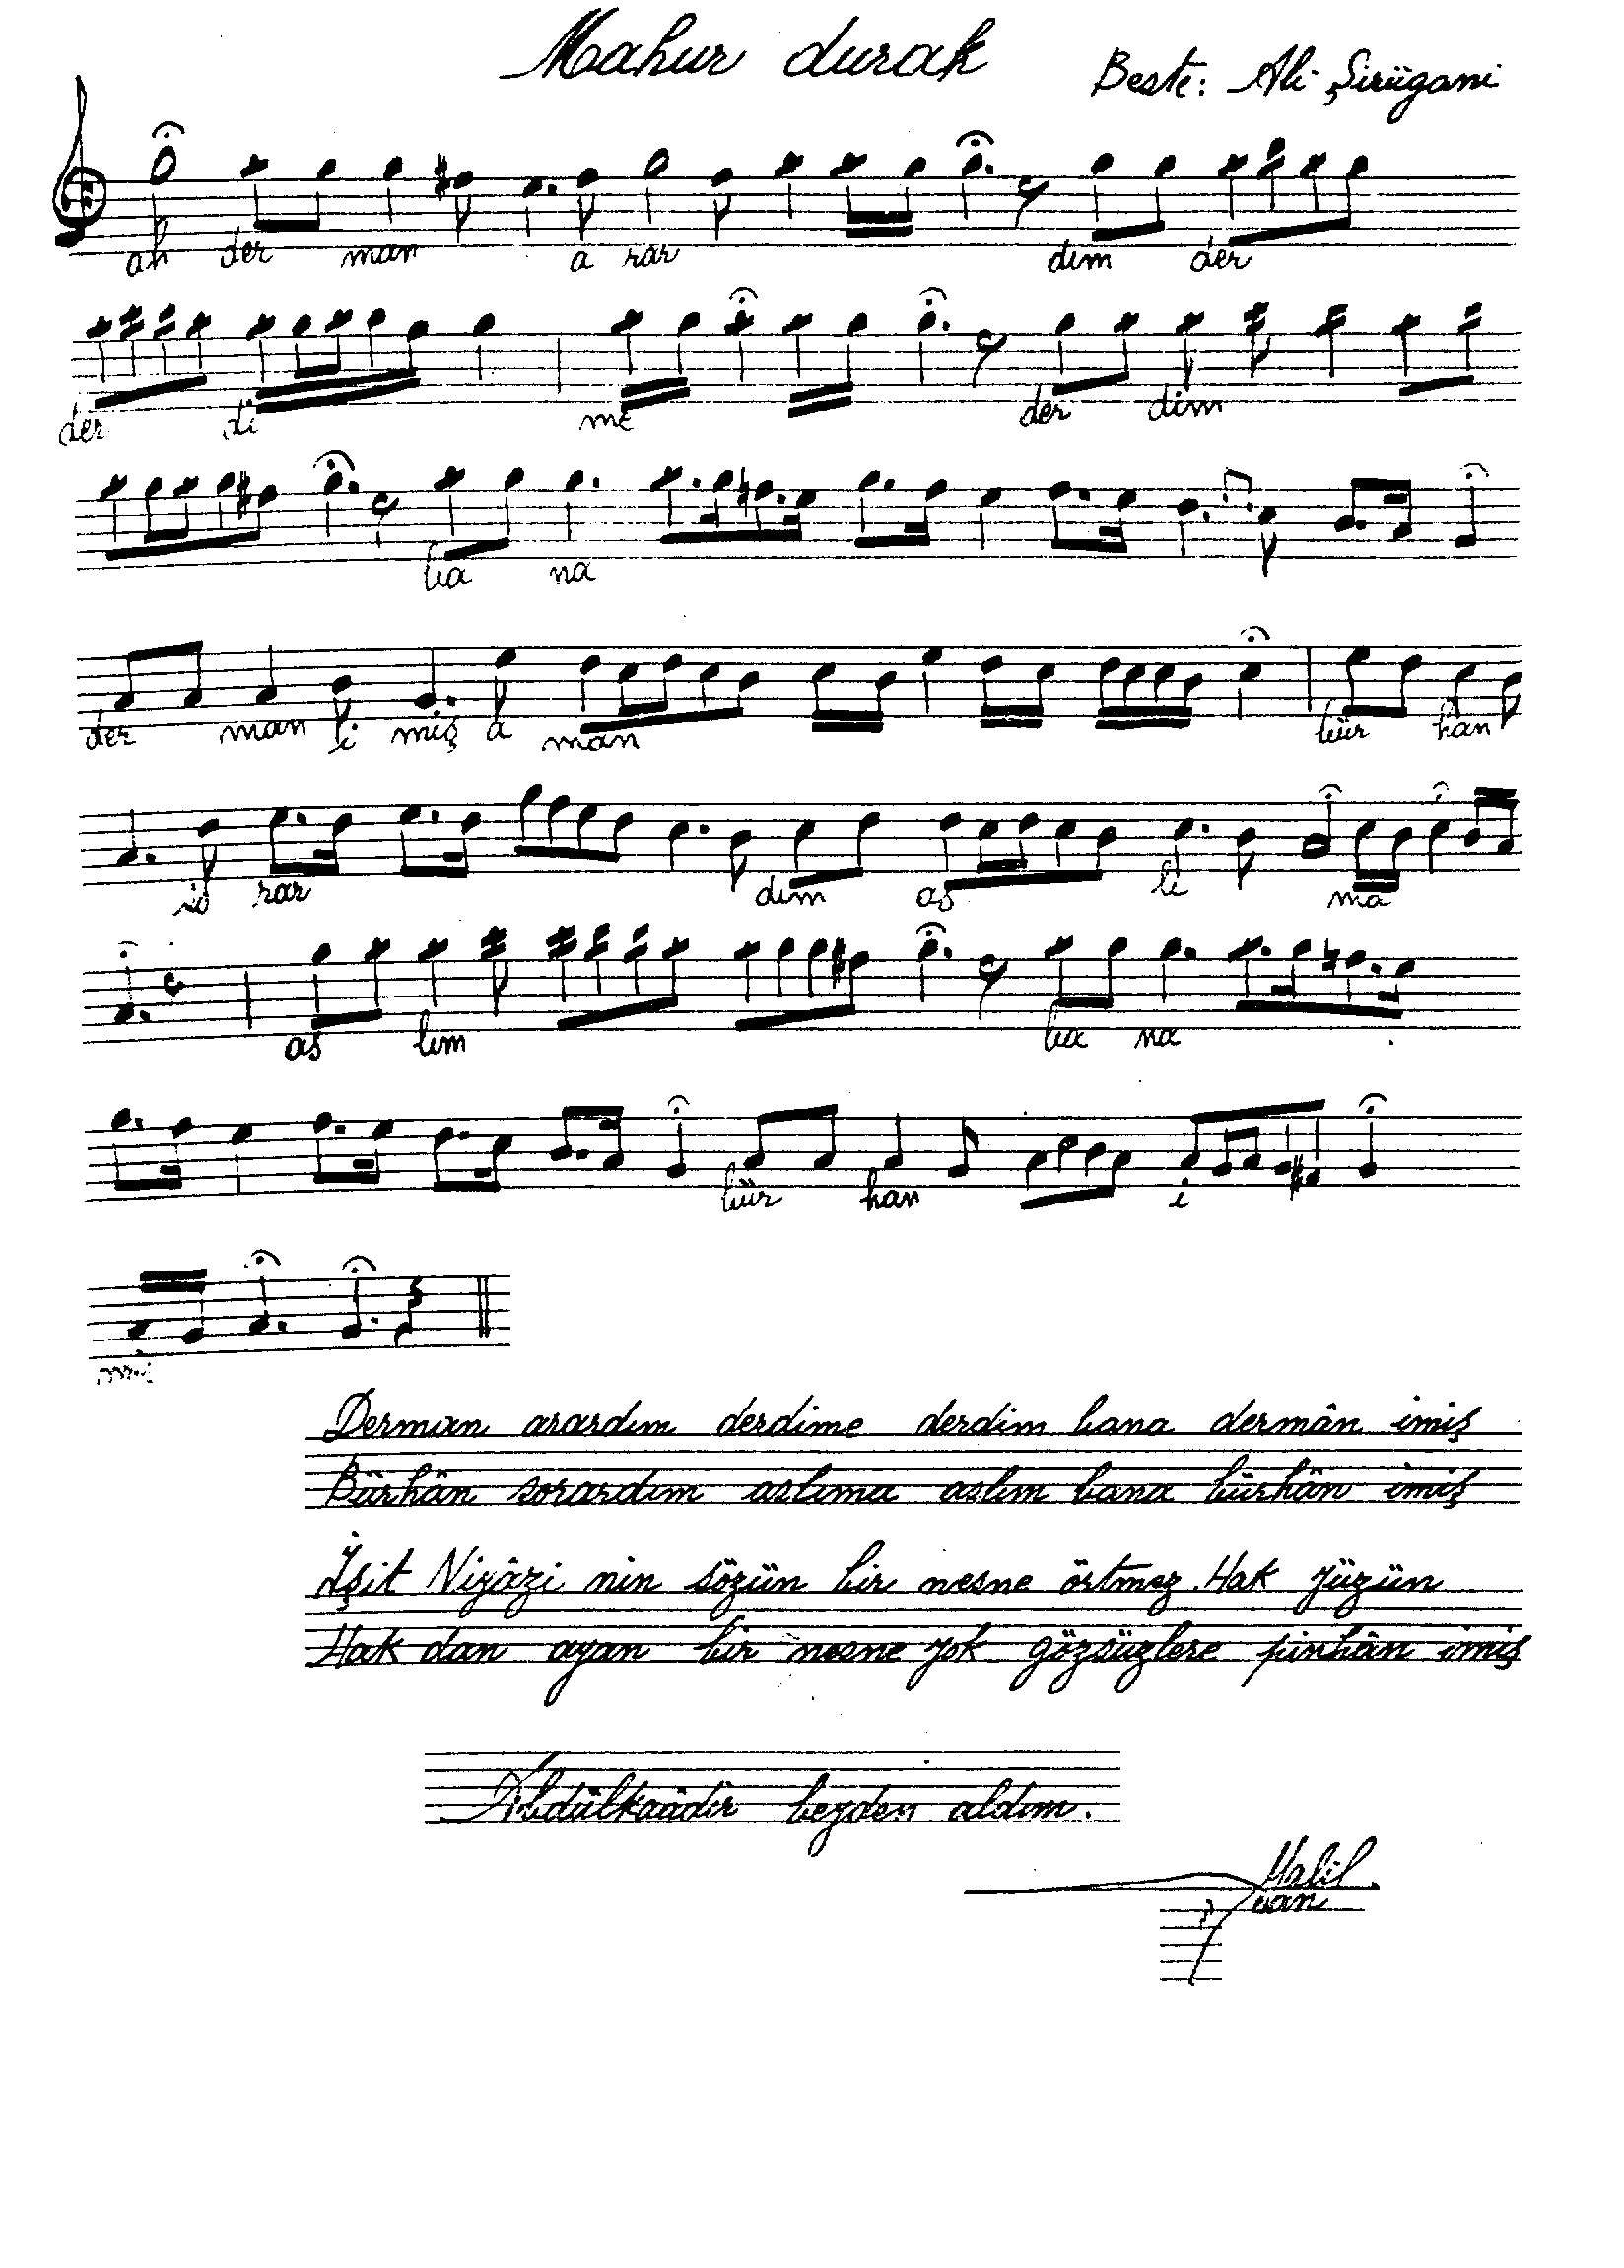 Mahur durak
Beste: Ali Şirügani
ah der man a rar dım der
der di me der dim
ba na
der man li miş a man bür han
so rar dım as lı ma
as lım ba na
bür han i
miş
Derman arardım derdime derdim bana dermân imiş
Bürhân sorardım aslıma aslım bana bürhân imiş
İşit Niyâzi nin sözün bir nesne örtmez Hak yüzün
Hak dan ayan bir nesne yok gözsüzlere pinhân imiş
Abdülkaadir beyden aldım.
Halil
can